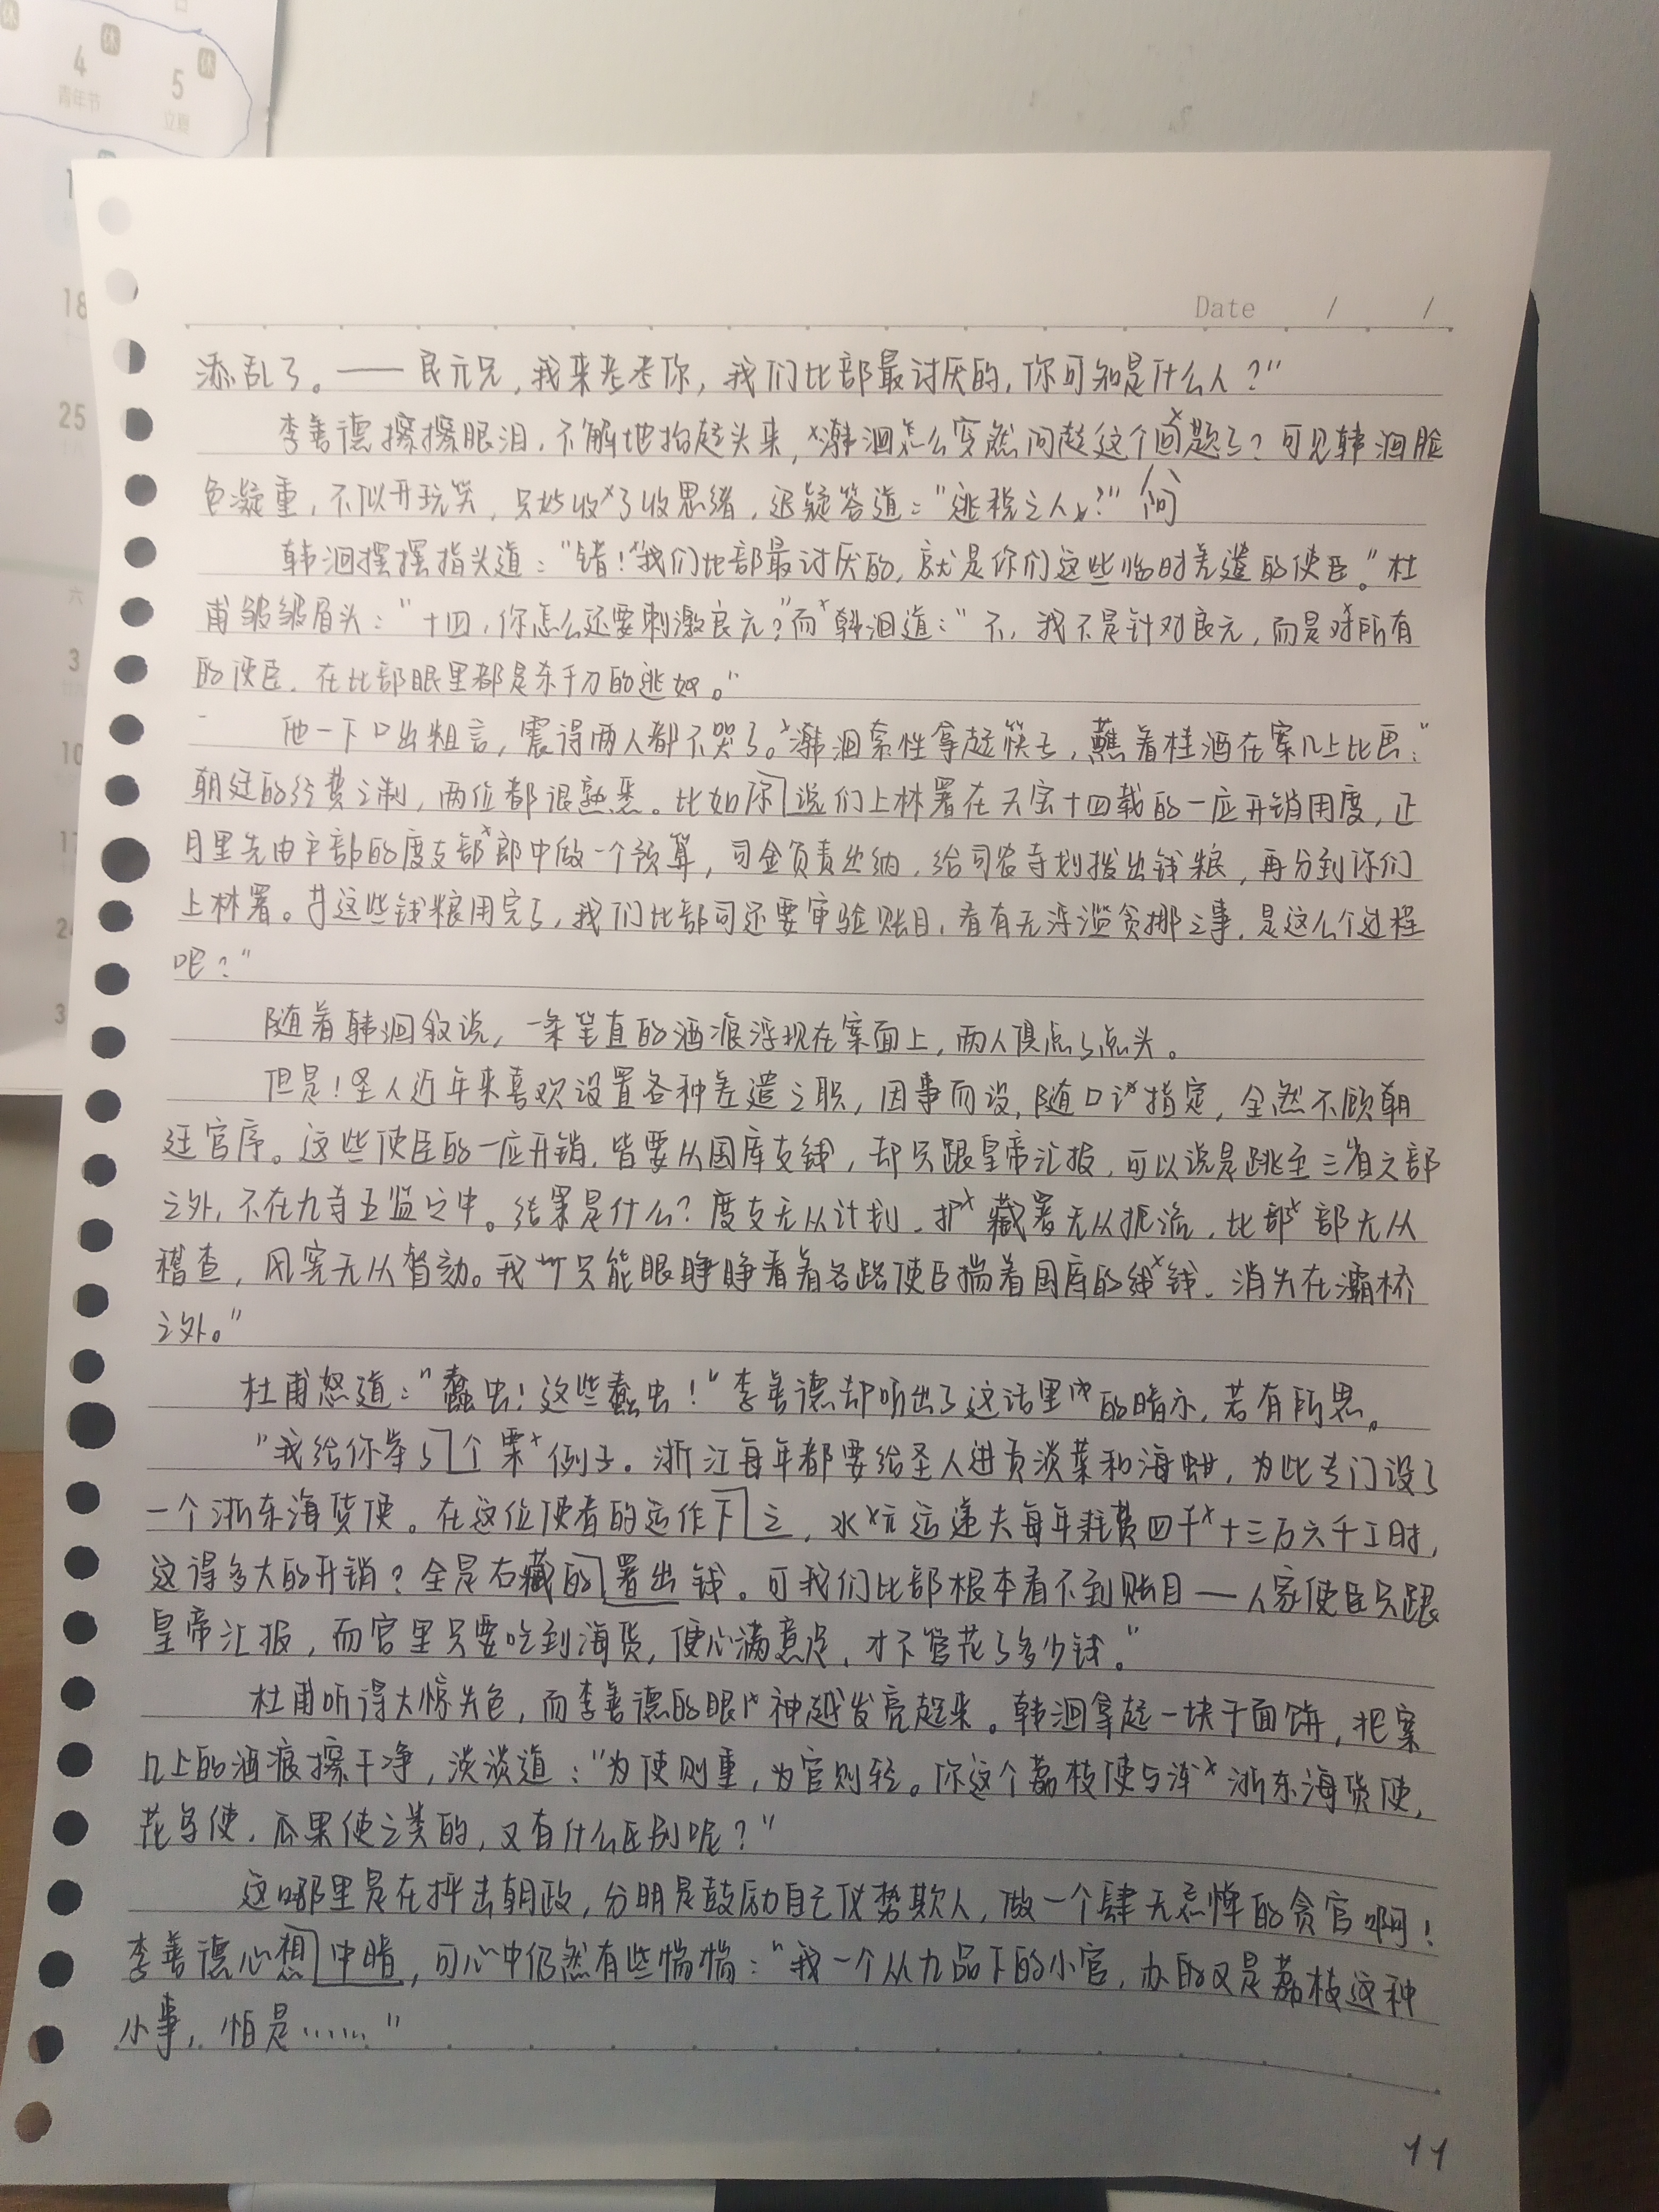 4 休
青年节
5 休
立夏
18
25
六
3
10
17
24
Date / /
添乱了。——良元兄,我来考考你,我们比部最讨厌的,你可知是什么人?"
李善德擦擦眼泪,不解地抬起头来,韩洄怎么突然问起这个问题了?可见韩洄脸
色凝重,不似开玩笑,只好收了收思绪,迟疑答道:"逃税之人?"
韩洄摆摆指头道:"错!我们比部最讨厌的,就是你们这些临时差遣的使臣。"杜
甫皱皱眉头:"十四,你怎么还要刺激良元?"而韩洄道:"不,我不是针对良元,而是对所有
的使臣,在比部眼里都是杀千刀的逃奴。"
他一下口出粗言,震得两人都不哭了。韩洄索性拿起筷子,蘸着桂酒在案几上比画:"
朝廷的经费之制,两位都很熟悉。比如你说们上林署在天宝十四载的一应开销用度,正
月里先由户部的度支部郎中做一个预算,司金负责出纳,给司农寺划拨出钱粮,再分到你们
上林署。等这些钱粮用完了,我们比部司还要审验账目,看有无浮滥贪挪之事,是这么个过程
吧?"
随着韩洄叙说,一条笔直的酒痕浮现在案面上,两人俱点了点头。
但是!圣人近年来喜欢设置各种差遣之职,因事而设,随口指定,全然不顾朝
廷官序。这些使臣的一应开销,皆要从国库支钱,却只跟皇帝汇报,可以说是跳至三省六部
之外,不在九寺五监之中。结果是什么?度支无从计划,藏署无从扼流,比部部无从
稽查,风宪无从督劾。我只能眼睁睁看着各路使臣揣着国库的钱,消失在灞桥
之外。"
杜甫怒道:"蠹虫!这些蠹虫!"李善德却听出了这话里的暗示,若有所思。
"我给你举了个栗例子。浙江每年都要给圣人进贡淡菜和海蚶,为此专门设了
一个浙东海货使。在这位使者的运作下之,水运递夫每年耗费四千十三万六千工时,
这得多大的开销?全是右藏的署出钱。可我们比部根本看不到账目——人家使臣只跟
皇帝汇报,而宫里只要吃到海货,便心满意足,才不管花了多少钱。"
杜甫听得大惊失色,而李善德的眼神越发亮起来。韩洄拿起一块干面饼,把案
几上的酒痕擦干净,淡淡道:"为使则重,为官则轻。你这个荔枝使与浙东海货使,
花鸟使,瓜果使之类的,又有什么区别呢?"
这哪里是在抨击朝政,分明是鼓励自己仗势欺人,做一个肆无忌惮的贪官啊!
李善德心想中暗,可心中仍然有些惴惴:"我一个从九品下的小官,办的又是荔枝这种
小事,怕是……"
11